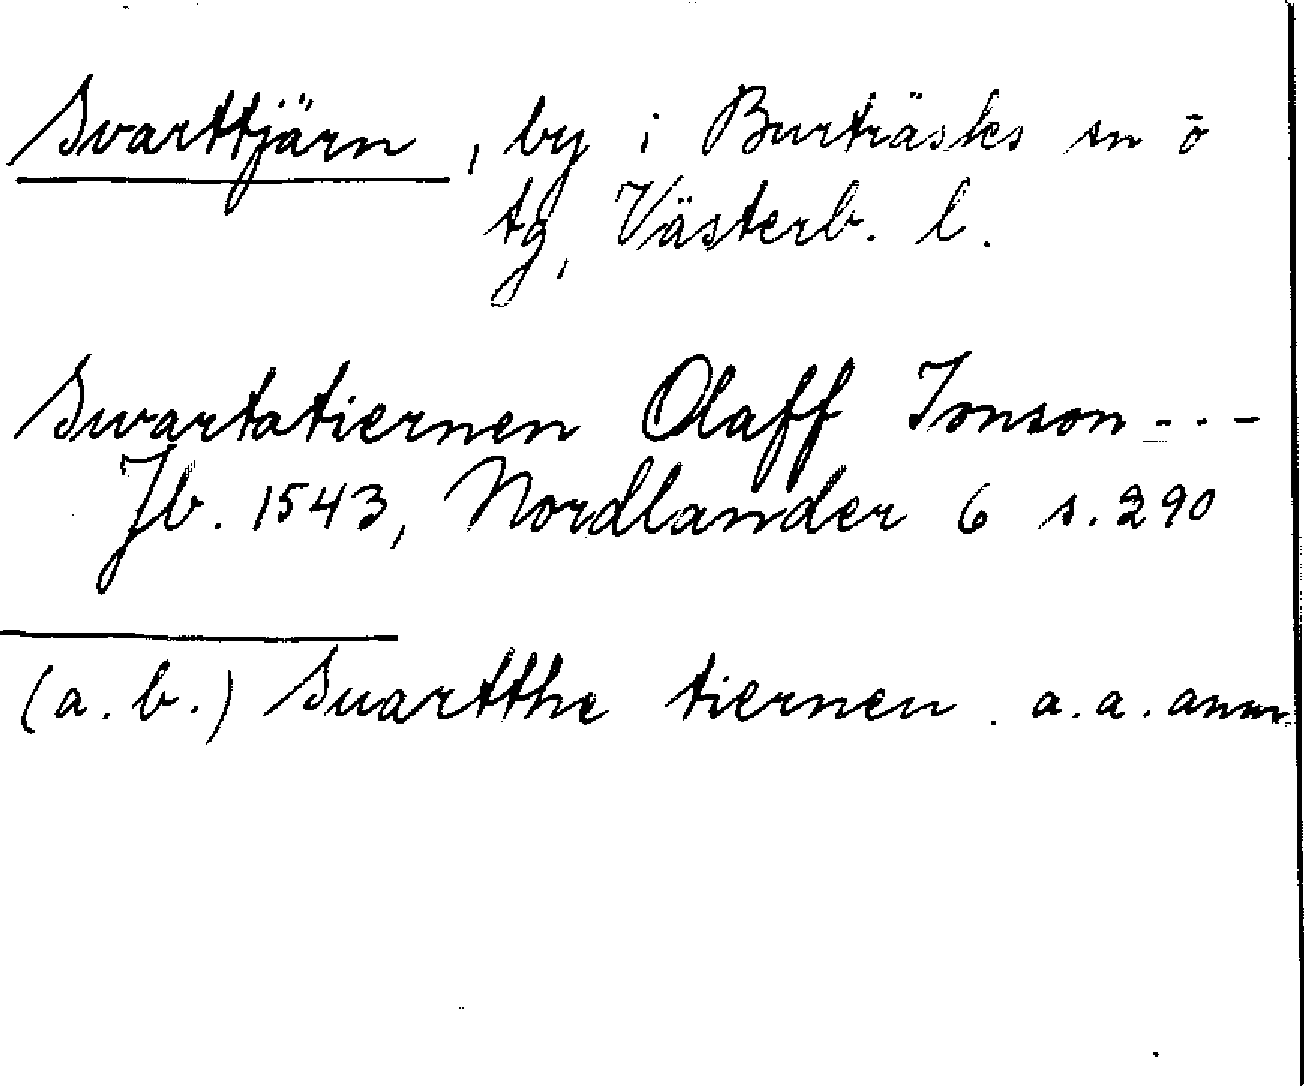 Svarttjärn, by i Burträsks sn ō
tg, Västerb. l.
Swartatiernen Olaff Jonson - - -
Jb. 1543, Nordlander 6 s. 290
(a. b.) Suartthe tiernen. a. a. anm